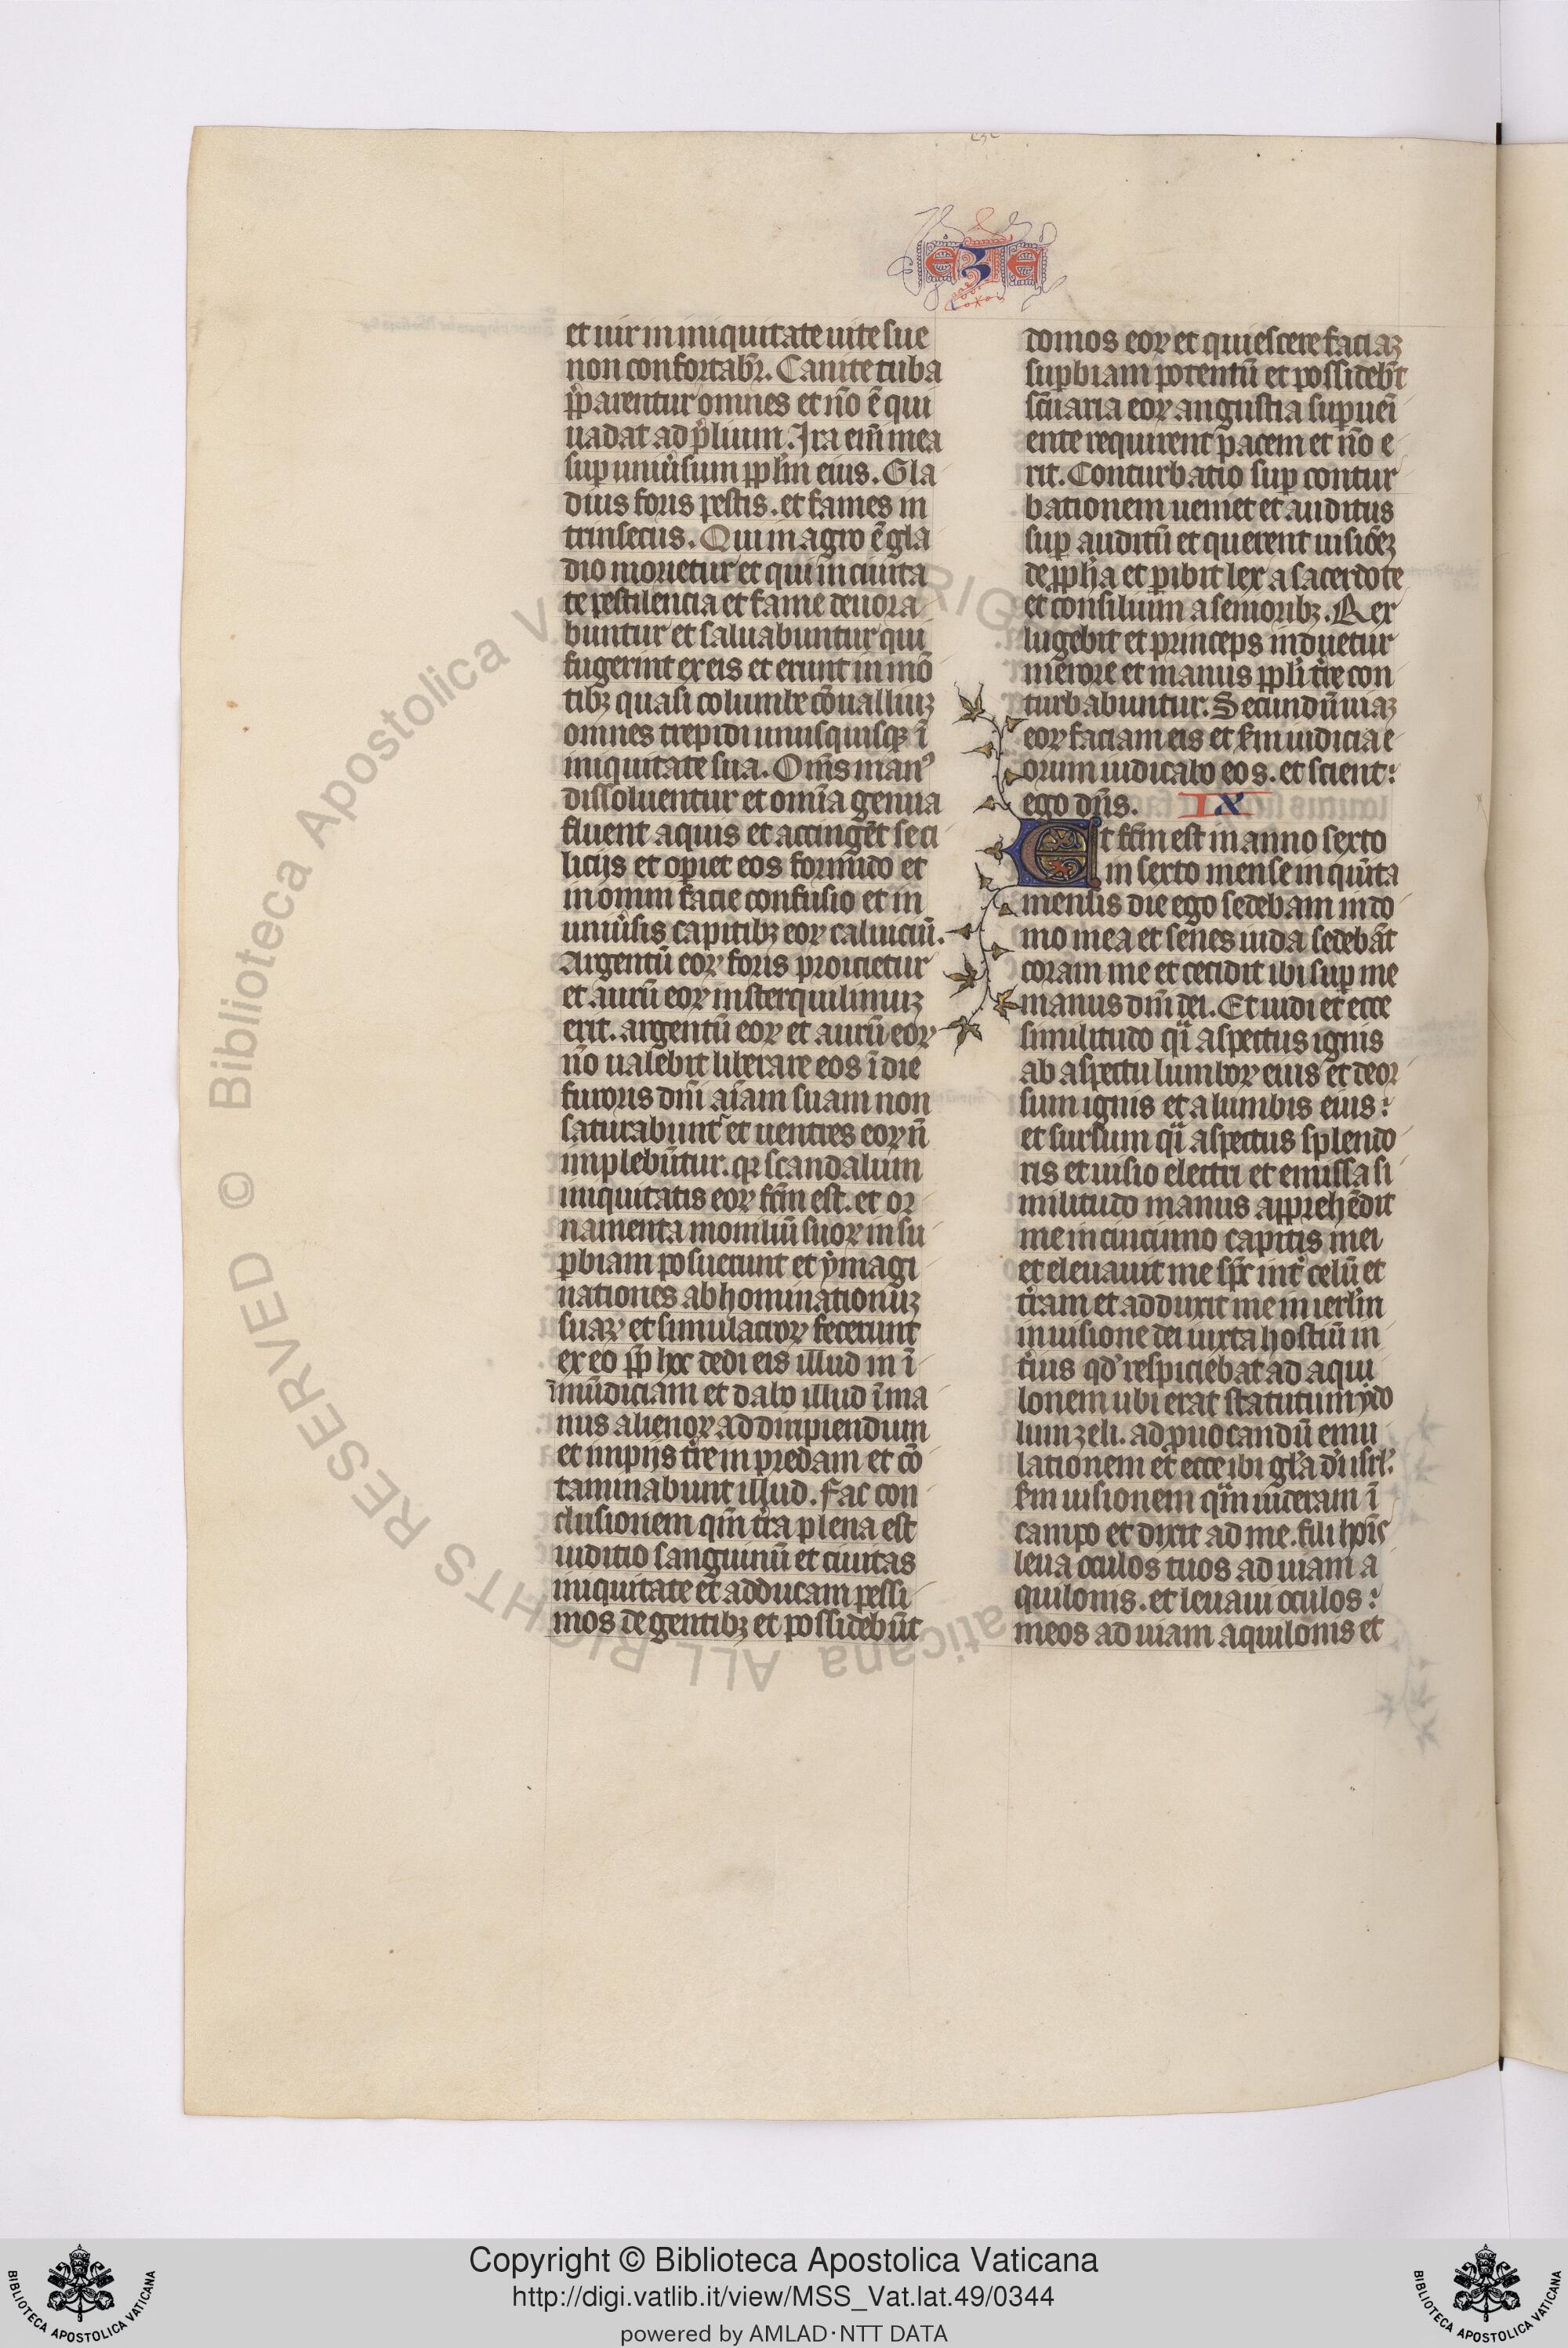 EZE
et uir in iniquitate uite sue
non confortabr̄. Canite tuba
p̄parentur omnes et nō ē qui
uadat ad p̄lium. Ira eni̅ mea
sup uniu̅sum pplm̅ eius. Gla
dius foris pestis. et fames in
trinsecus. Qui in agro ē gla
dio morietur et qui in ciuita
te pestilencia et fame deuora
buntur et saluabuntur qui
fugerint ex eis et erunt in mō
tibꝫ quasi columbe cōualliuꝫ
omnes trepidi unusquisqꝫ ī
iniquitate sua. Om̅s manꝰ
dissoluentur et omīa genua
fluent aquis et accingēt se ci
licijs et opiet eos formido et
in omni facie confusio et in
uniu̅sis capitibꝫ eoꝝ caluiciū.
Argentū eoꝝ foris proicietur
et aurū eoꝝ in sterquiliniuꝫ
erit. argentū eoꝝ et aurū eoꝝ
nō ualebit liberare eos ī die
furoris dn̅i ai̅am suam non
saturabunt et uentres eoꝝ n̅
implebūtur. qꝛ scandalum
iniquitatis eoꝝ fc̅m est. et or
namenta moniliū suoꝝ in su
pbiam posuerunt et ymagi
nationes abhominationūꝫ
suaꝝ et simulacroꝝ fecerunt
ex eo pp̅ hoc dedi eis illud in ī
mūdiciam et dabo illud ī ma
nus alienoꝝ ad diripiendum
et impijs tr̅e in predam et cō
taminabunt illud. Fac con
clusionem qm̅ tr̅a plena est
iuditio sanguinū et ciuitas
iniquitate et adducam pessi
mos de gentibꝫ et possidebūt
domos eoꝝ et quiescere faciaꝫ
supbiam potentū et possidebūt
sc̅uaria eoꝝ angustia supueī
ente requirent pacem et nō e
rit. Conturbatio sup contur
bationem ueniet et auditus
sup auditū et querent uisiōeꝫ
de ppha̅ et pibit lex a sacerdote
et consilium a senioribꝫ. Rex
lugebit et princeps induetur
merore et manus ppli̅ tr̅e con
turbabuntur. Secundū uiaꝫ
eoꝝ faciam eis et sm̅ iudicia e
orum iudicabo eos. et scient:
ego dn̅s. IX
Et fc̅m est in anno sexto
in sexto mense in quīta
mensis die ego sedebam in do
mo mea et senes iuda sedebāt
coram me et cecidit ibi sup me
manus dn̅i dei. Et uidi et ecce
similitudo qi̅ aspectus ignis
ab aspectu lumboꝝ eius et deor
sum ignis et a lumbis eius:
et sursum qi̅ aspectus splendo
ris et uisio electri et emissa si
militudo manus apprehēdit
me in cincinno capitis mei
et eleuauit me spr̅ int̅ celū et
tr̅am et adduxit me in ierlm̅
in uisione dei iuxta hostiū in
t̅ius qd̅ respiciebat ad aqui
lonem ubi erat statutum ydo
lum zeli. ad prouocandū emu
lationem et ecce ibi gl̅a di̅ isrl̅.
sm̅ uisionem qm̅ uideram ī
campo et dixit ad me. fili hoi̅s
leua oculos tuos ad uiam a
quilonis. et leuaui oculos:
meos ad uiam aquilonis et
© Biblioteca Apostolica Vaticana ALL RIGHTS RESERVED
Copyright © Biblioteca Apostolica Vaticana
http://digi.vatlib.it/view/MSS_Vat.lat.49/0344
powered by AMLAD·NTT DATA
BIBLIOTECA APOSTOLICA VATICANA
BIBLIOTECA APOSTOLICA VATICANA